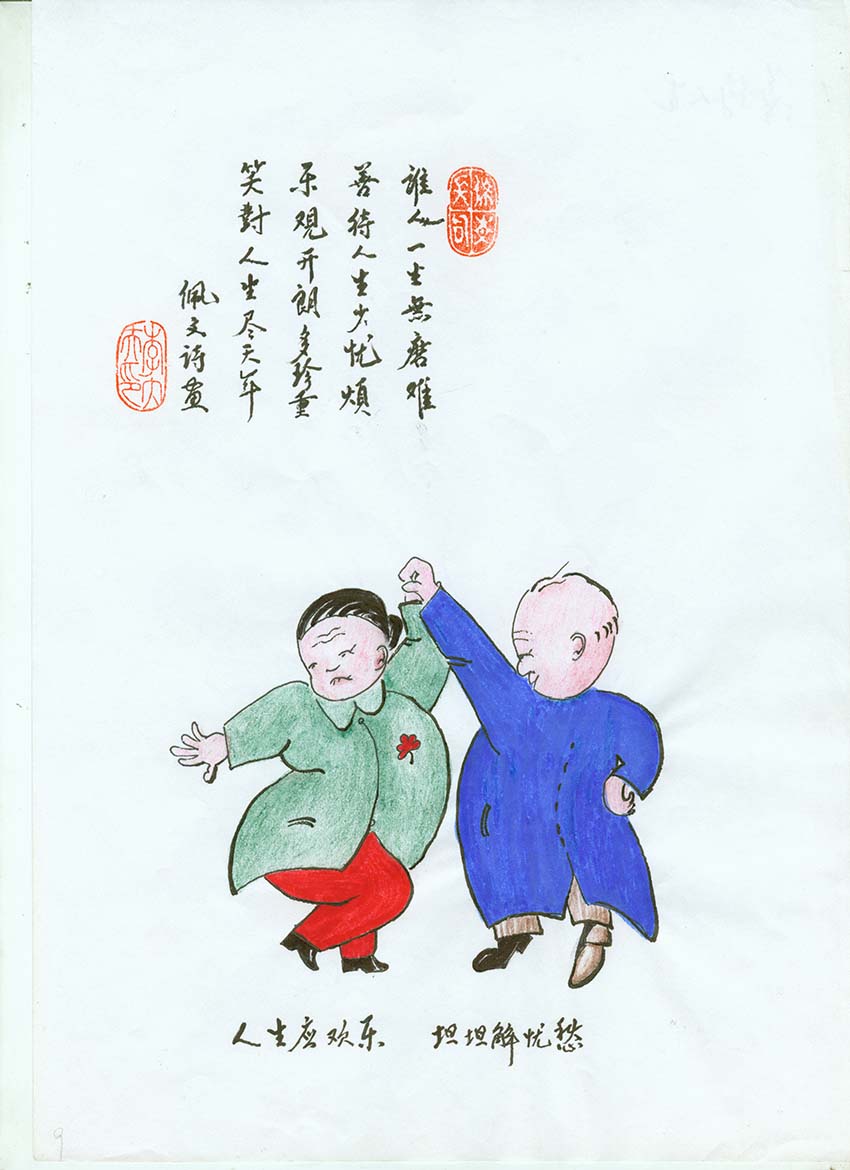 誰人一生無磨难
善待人生少忧煩
乐观开朗多珍重
笑對人生尽天年
佩文诗画
人生应欢乐 坦坦解忧愁
9